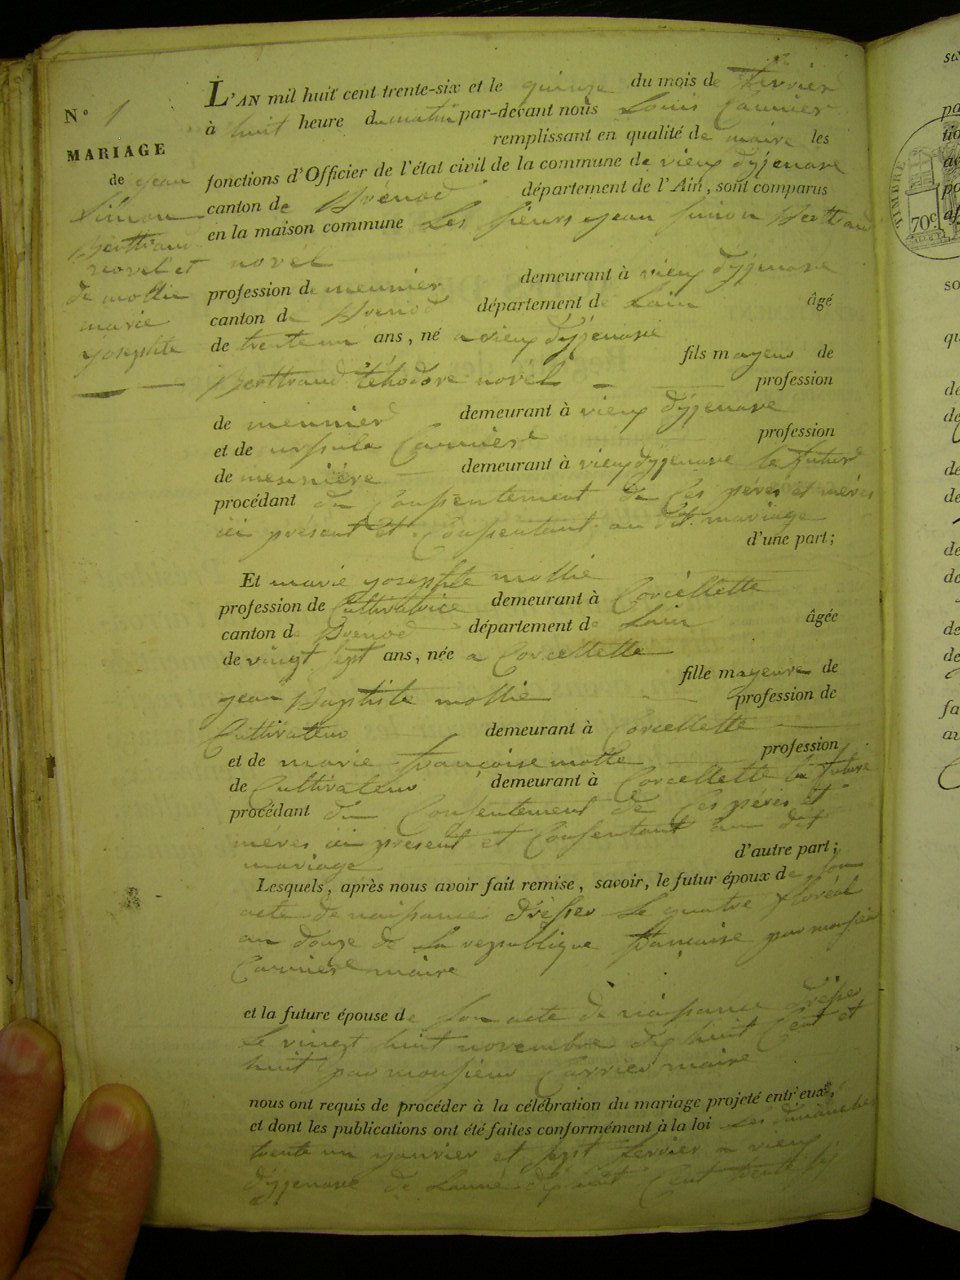 N° 1
MARIAGE
de jean
Simon
Berttrand
novel et
de mollie
marie
yosephte
L'AN mil huit cent trente-six et le quinze du mois de fevrier
à huit heure du matin par-devant nous Louis Carrier
remplissant en qualité de maire les
fonctions d'Officier de l'état civil de la commune de vieux dyzenave
canton de Brénod département de l'Ain, sont comparus
en la maison commune Les sieurs jean simon Berttrand
novel
profession de meunier demeurant à vieux dyzenave
canton de Brenod département de Lain âgé
de trente un ans, né a vieux dyzenave
fils mayeur de
Berttrand théhodore novel profession
de meunier demeurant à vieux dyzenave
et de ursule Carrière profession
de meunière demeurant à vieux dyzenave le futur
procédant du Consentement de Ces pères et mères
ici présent et Consentant au dit mariage
d'une part;
Et marie yosephte mollie
profession de Cultivatrice demeurant à Corcellette
canton de Brenod département de Lain âgée
de vingt sept ans, née a Corcellette
fille mayeure de
jean Baptiste mollie profession de
Cultivateur demeurant à Corcellette
et de marie françoise motte profession
de Cultivateur demeurant à Corcellette la future
procédant du Consentement de Ces pères et
mères ici présent et Consentant au dit
mariage d'autre part;
Lesquels, après nous avoir fait remise, savoir, le futur époux de son
acte de naissance dressé Le quatre floréal
an douze de La republique française par monsieur
Carrière maire
et la future épouse de son acte de naissance dressé
Le vingt huit novembre dix huit Cent et
huit par monsieur Carrier maire
nous ont requis de procéder à la célébration du mariage projeté entr'eux,
et dont les publications ont été faites conformément à la loi Les dimanches
trente un yanvier et sept fevrier a vieux
dyzenave de Lannée dix huit Cent trente six
TIMBRE
70c